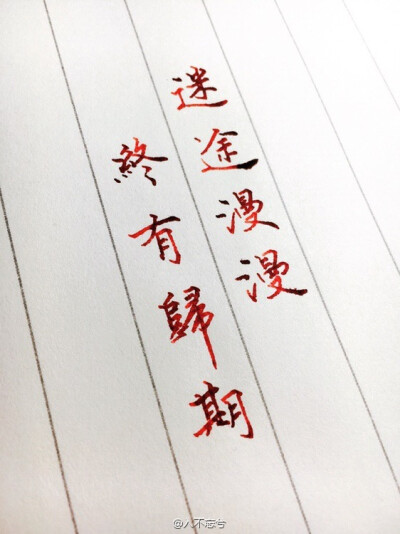 迷途漫漫
終有歸期
@八不忘兮